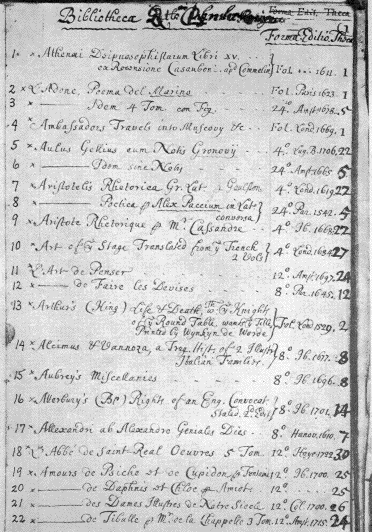 Bibliotheca
Forma Editio Theca
1 × Athenæi Deipnosophistarum Libri XV.
ex Recensione Casauboni. apd Commelin Fol ... 1611. 1
2 × L'Adone, Poema del Marino Fol. Paris 1623. 1
3 × ——— Idem 4 Tom con Fig. 24.o Amst. 1678. 5
4 × Ambassadors Travels into Muscovy &c Fol. Lond 1669. 1
5 × Aulus Gellius cum Notis Gronovij 4.o Lug.B. 1706. 22
6 × ——— Idem sine Notis 24.o Amst. 1665. 5
7 × Aristotelis Rhetorica Gr. Lat. 4.o Lond. 1619. 22
8 × ——— Poetica p Alex Paccium in Lat conversa 24.o Par. 1542. 5
9 × Aristote Rhetorique p Mr. Cassandre 4.o 22
10 × Art of ye Stage Translated from ye French
2 Vols 4.o Lond. 1684. 27
11 L'Art de Penser 12.o Amst. 1697. 24
12 × ——— de Faire les Devises 8.o Par. 1645. 12
13 × Arthur's (King) Life & Death, wth ye Knights
of ye Round Table, wants ye Title
Printed by Wynkyn de Worde Fol. Lond 1529. 2
14 × Alcimus & Vannoza, a Trag. Hist. of 2 Illustr
Italian Families 8.o 8
15 × Aubrey's Miscellanies 8.o Ib. 1696. 8
16 × Atterbury's (Bp) Rights of an Eng. Convocat
8.o Ib. 1701. 14
17 × Alexandri ab Alexandro Geniales Dies 8.o Hanov. 1610. 7
18 × L'Abbe de Saint Real Oeuvres 5 Tom. 12.o 1722 30
19 × Amours de Psiche et de Cupidon 12.o Ib. 1700. 25
20 × ——— de Daphnis et Chloe p Amiot 12.o 25
21 × ——— des Dames Illustres de Notre Siecle 12.o Col. 1700. 26
22 × ——— de Tibulle p Mr. de la Chappelle 3 Tom. 12.o Amst. 1715. 24